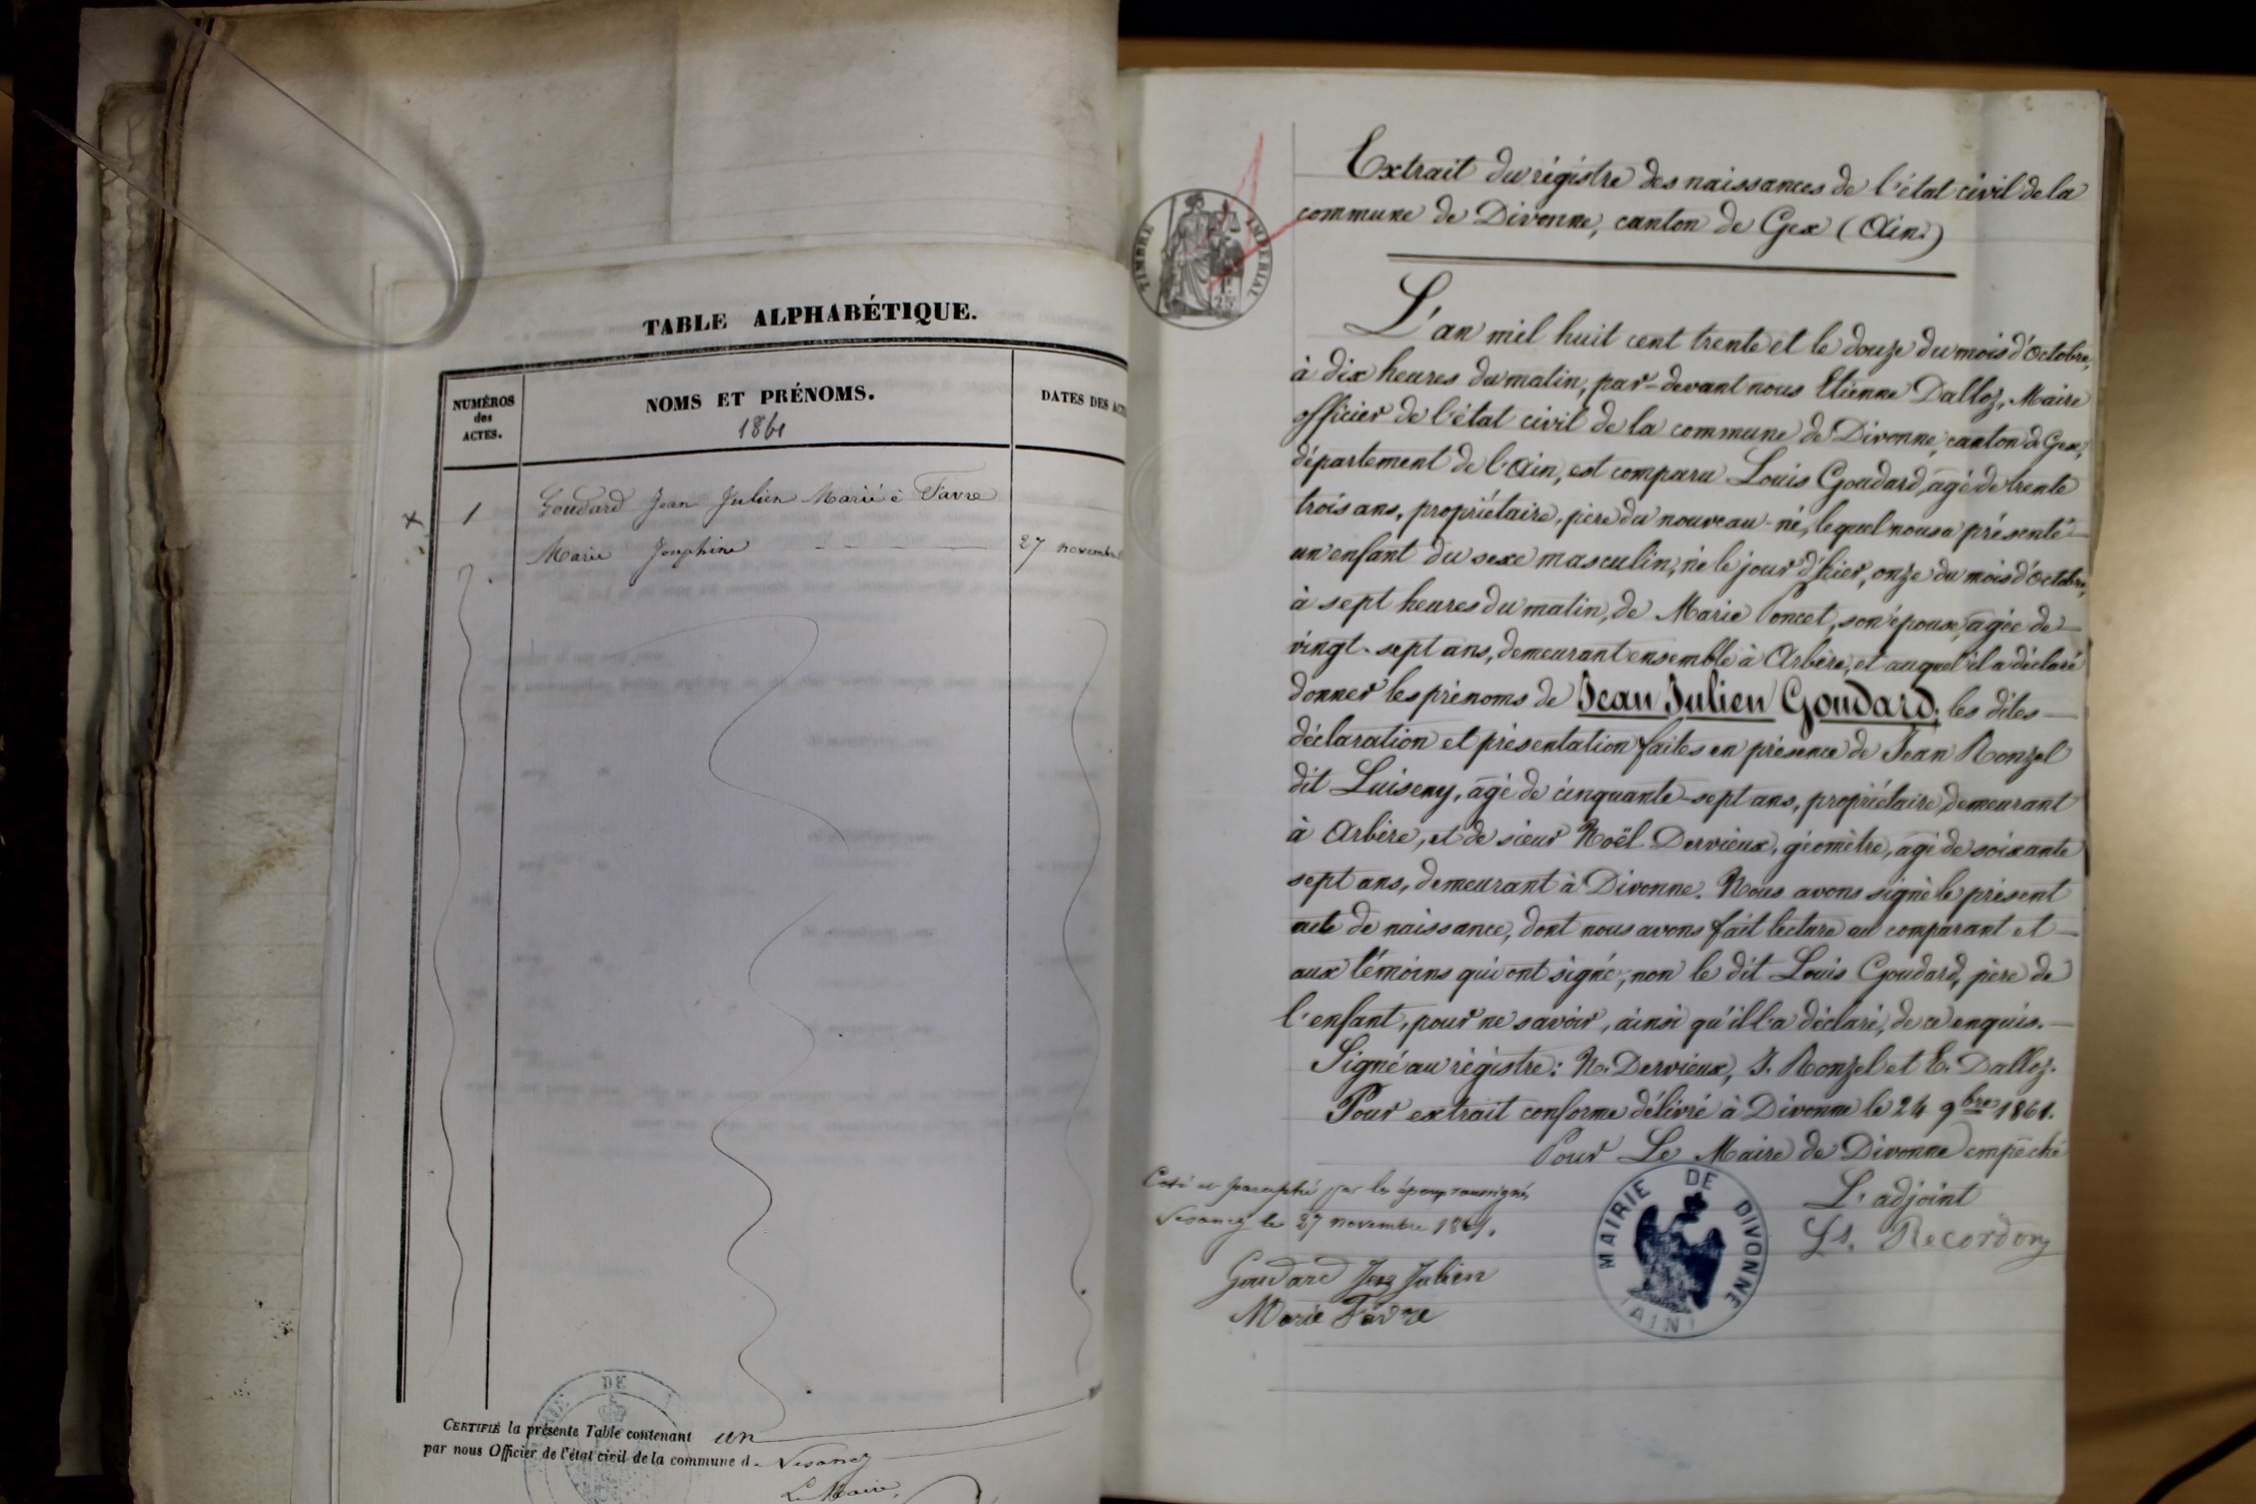 TABLE ALPHABÉTIQUE.
NUMÉROS
des
ACTES.
NOMS ET PRÉNOMS.
1861
DATES DES
1
Goudard Jean Julien Marié à Favre
Marie Josephine
27 novembre
CERTIFIÉ la présente Table contenant un
par nous Officier de l'état civil de la commune d
Le Maire,
TIMBRE IMPERIAL
Extrait du régistre des naissances de l'état civil de la
commune de Divonne, canton de Gex (Ain.)
L'an mil huit cent trente et le douze du mois d'octobre,
à dix heures du matin, par-devant nous Etienne Dalloz, Maire
officier de l'état civil de la commune de Divonne, canton de Gex,
département de l'Ain, est comparu Louis Goudard, agé de trente
trois ans, propriétaire, père du nouveau-né, lequel nous a présenté
un enfant du sexe masculin, né le jour d'hier, onze du mois d'octobre,
à sept heures du matin, de Marie Poncet, son épouse, agée de
vingt-sept ans, demeurant ensemble à Arbère, et auquel il a déclaré
donner les prénoms de Jean Julien Goudard, les dites
déclaration et présentation faites en présence de Jean Ronzel
dit Luiseny, agé de cinquante-sept ans, propriétaire, demeurant
à Arbère, et de sieur Noël Dervieux, géomètre, agé de soixante
sept ans, demeurant à Divonne. Nous avons signé le présent
acte de naissance, dont nous avons fait lecture au comparant et
aux témoins qui ont signé, non le dit Louis Goudard, père de
l'enfant, pour ne savoir, ainsi qu'il l'a déclaré, de ce enquis.
Signé au régistre: N. Dervieux, J. Ronzel et E. Dalloz.
Pour extrait conforme délivré à Divonne le 24 9bre 1861.
Pour Le Maire de Divonne empêché
L'adjoint
Ls. Recordon
MAIRIE DE DIVONNE
(AIN)
Coté et paraphé par les époux soussignés
le 27 novembre 1861.
Goudard Jean Julien
Marie Favre